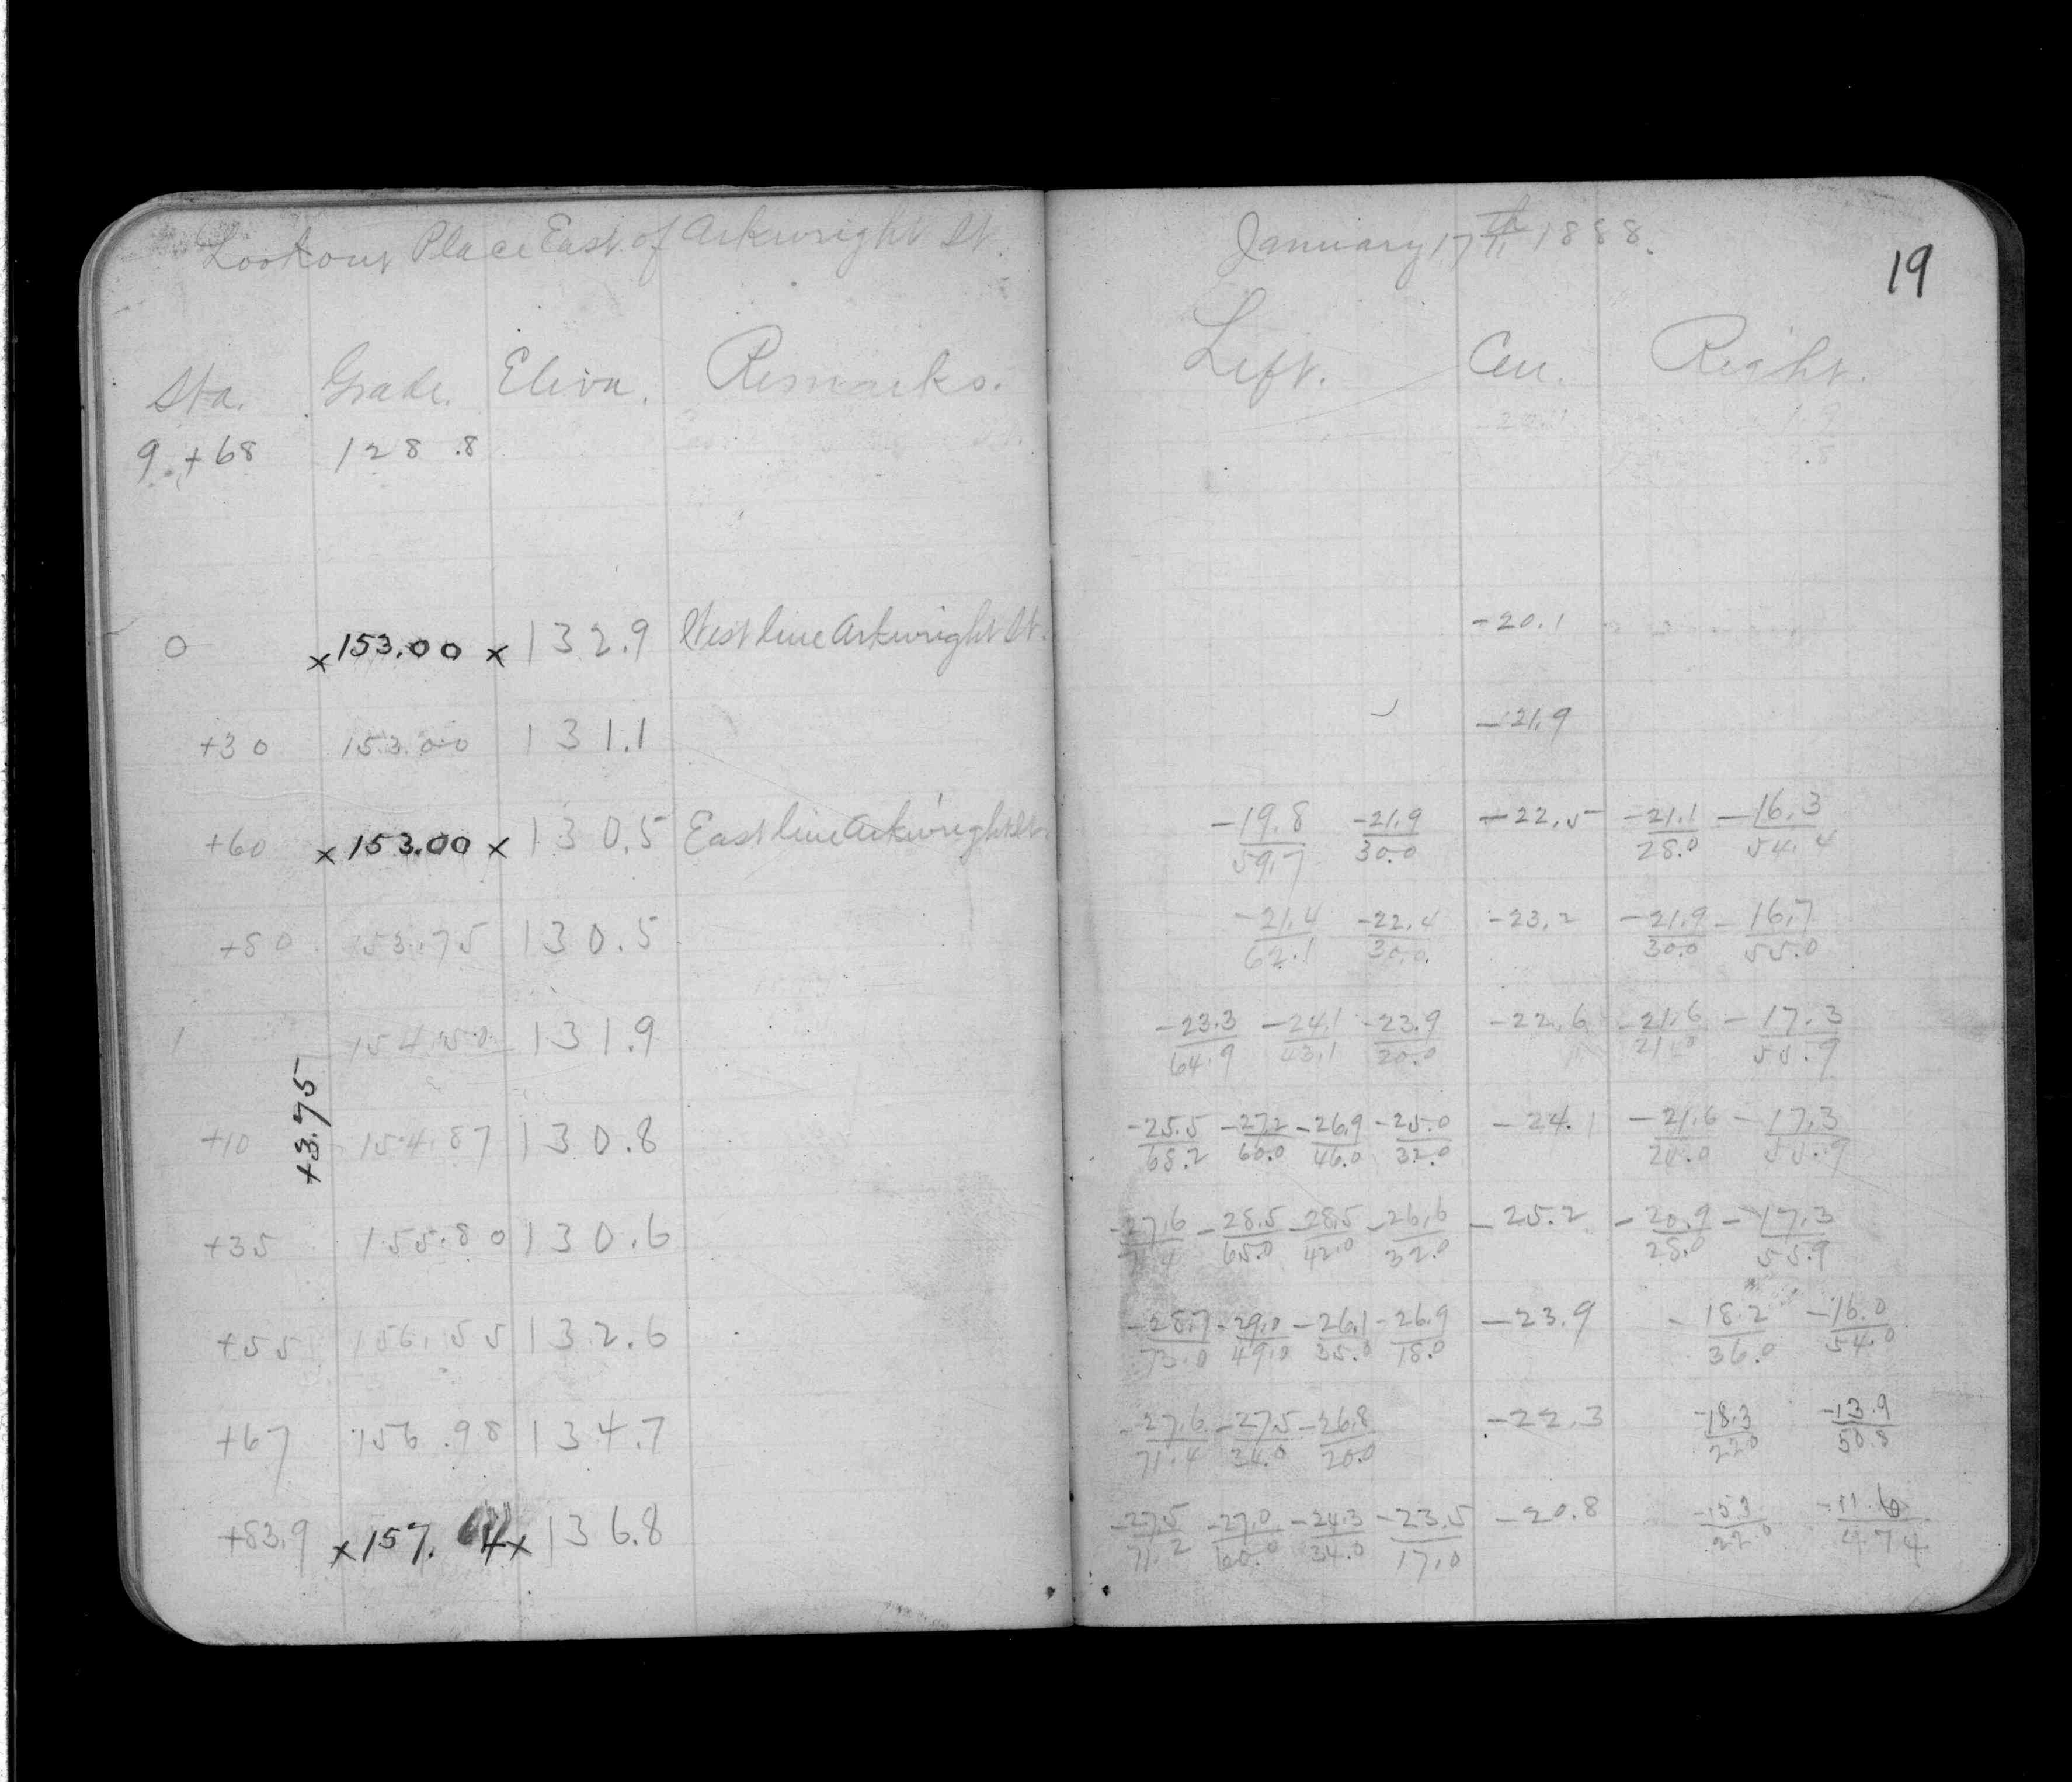 Lookout Place East of Arkwright St.
Sta. Grade. Eleva. Remarks.
9 +68 128.8
0 x 153.00 x 132.9 West line Arkwright St.
+30 153.00 131.1
+60 x 153.00 x 130.5 East line Arkwright St.
+80 153.75 130.5
1 154.50 131.9
+3.75
+10 154.87 130.8
+35 155.80 130.6
+55 156.55 132.6
+67 156.98 134.7
+83.9 x 157. 4 x 136.8
January 17th 1888.
19
Left. Cen. Right.
-20.1
-21.9
-19.8 -21.9 -22.5 -21.1 -16.3
59.7 30.0 28.0 54.4
-21.4 -22.4 -23.2 -21.9 -16.7
62.1 30.0 30.0 55.0
-23.3 -24.1 -23.9 -22.6 -21.6 -17.3
64.9 43.1 20.0 21.0 55.9
-25.5 -27.2 -26.9 -25.0 -24.1 -21.6 -17.3
68.2 60.0 46.0 32.0 24.0 55.9
-27.6 -28.5 -28.5 -26.6 -25.2 -20.9 -17.3
71.4 65.0 42.0 32.0 28.0 55.9
-28.7 -29.0 -26.1 -26.9 -23.9 -18.2 -16.0
73.0 49.0 35.0 18.0 36.0 54.0
-27.6 -27.5 -26.8 -22.3 -18.3 -13.9
71.4 34.0 20.0 22.0 50.8
-27.5 -27.0 -24.3 -23.5 -20.8 -15.3 -11.6
71.2 60.0 34.0 17.0 22.0 47.4